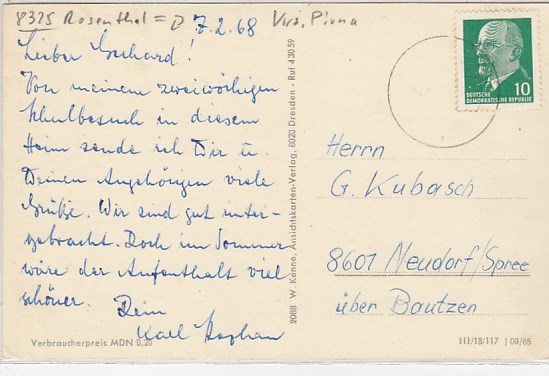 8325 Rosenthal = D 7.2.68 Krs. Pirna
Lieber Gerhard!
Von meinem zweiwöchigen
Schulbesuch in diesem
Heim sende ich Dir u.
Deinen Angehörigen viele
Grüße. Wir sind gut unter-
gebracht. Doch im Sommer
wäre der Aufenthalt viel
schöner.
Dein
Karl
Verbraucherpreis MDN 0,20
2088 W. Kenne, Ansichtskarten-Verlag, 8020 Dresden · Ruf 43059
10
DEUTSCHE
DEMOKRATISCHE REPUBLIK
Herrn
G. Kubasch
8601 Neudorf/Spree
über Bautzen
III/18/117 | 09/65